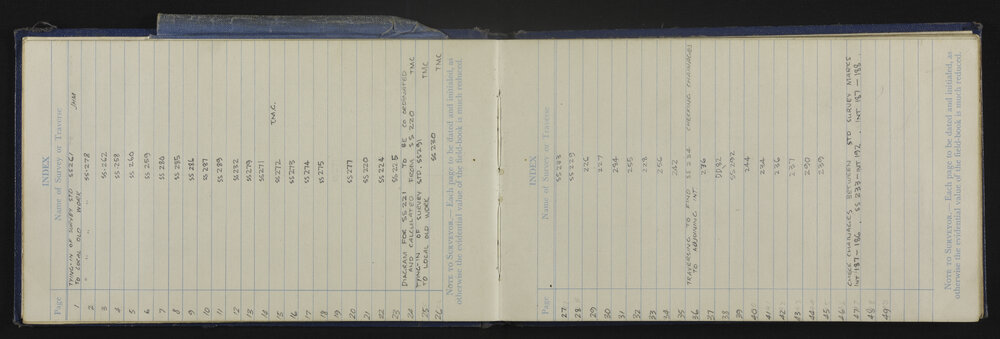 INDEX
Page Name of Survey or Traverse
1 TYING-IN OF SURVEY STD SS261 JHM
TO LOCAL OLD WORK
2 " " " SS-278
3 SS-262
4 SS-258
5 SS 260
6 SS 259
7 SS 280
8 SS 285
9 SS 286
10 SS 287
11 SS 289
12 SS 282
13 SS 279
14 SS 271
15 SS 272 T.M.C.
16 SS 273
17 SS 274
18 SS 275
19
20 SS 277
21 SS 220
22 SS 224
23 SS 225
24 DIAGRAM FOR SS 221 TO BE CO ORDINATED
AND CALCULATED FROM SS 220 TMC
25 TYING-IN OF SURVEY STD. SS291 TMC
TO LOCAL OLD WORK
26 SS 230 TMC
NOTE TO SURVEYOR.—Each page to be dated and initialed, as
otherwise the evidential value of the field-book is much reduced.
INDEX
Page Name of Survey or Traverse
27 SS 223
28 SS 229
29 226
30 227
31 254
32 255
33 228
34 256
35 242
36 TRAVERSING TO FIND SS 234 CHECKING CHAINAGES
TO ADJOINING INT.
37 276
38
39 SS 292
40 244
41 234
42 236
43 237
44 290
45 239
46
47 CHECK CHAINAGES BETWEEN STD SURVEY MARKS
INT 187 - 186 . SS 233 - INT 192 . INT 187 - 188 .
48
49
NOTE TO SURVEYOR.—Each page to be dated and initialed, as
otherwise the evidential value of the field-book is much reduced.